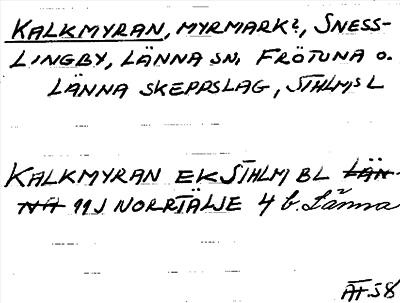 KALKMYRAN, MYRMARK?, SNESS-
LINGBY, LÄNNA SN, FRÖTUNA O.
LÄNNA SKEPPSLAG, STHLMS L
KALKMYRAN EK STHLM BL LÄN-
NA 11J NORRTÄLJE 4 b. Länna
ÄT. 58